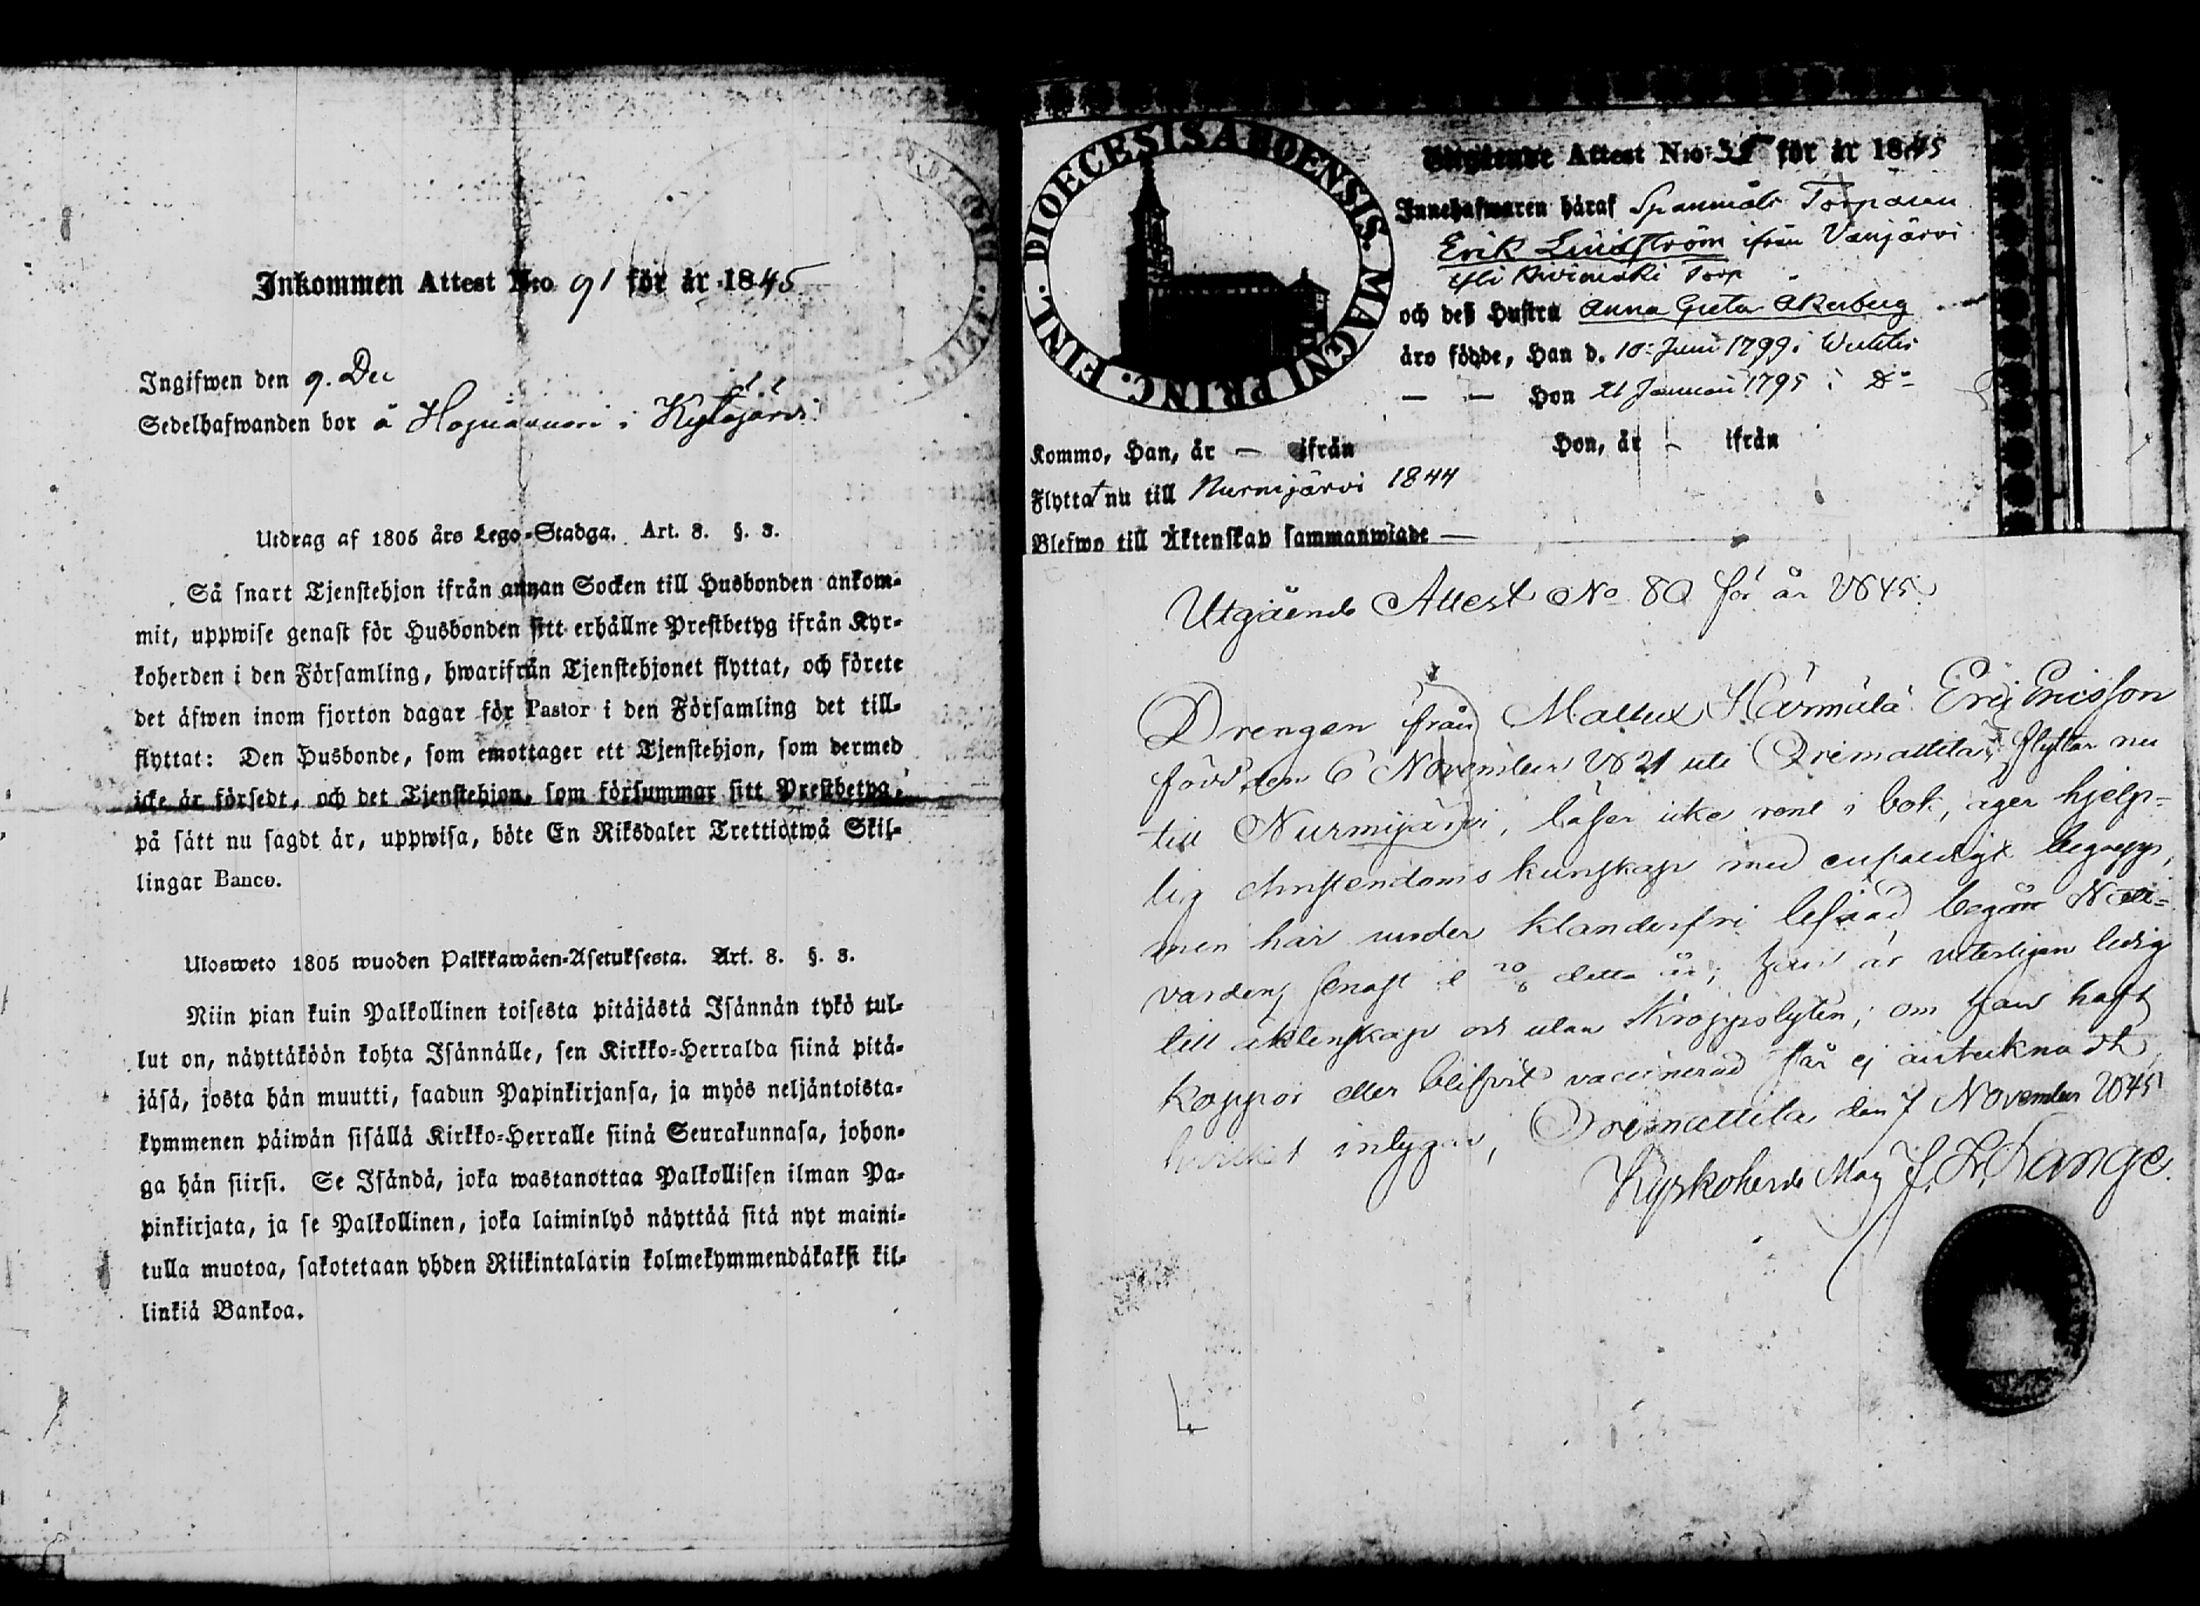 Inkommen Attest N:o 91 för år 1845
Ingifwen den 9. Dec
Sedelhafwanden bor å i Kytäjärvi
Utdrag af 1805 års Lego-Stadga. Art. 8. §. 3.
Så snart Tjenstehjon ifrån annan Socken till Husbonden ankom-
mit, uppwise genast för Husbonden sitt erhållne Prestbetyg ifrån Kyr-
koherden i den Församling, hwarifrån Tjenstehjonet flyttat, och förete
det äfwen inom fjorton dagar för Pastor i den Församling det till-
flyttat: Den Husbonde, som emottager ett Tjenstehjon, som dermed
icke är försedt, och det Tjenstehjon, som försummar sitt Prestbetyg,
på sätt nu sagdt är, uppwisa, böte En Riksdaler Trettiotwå Skil-
lingar Banco.
Ulosweto 1805 wuoden Palkkawäen-Asetuksesta. Art. 8. §. 3.
Niin pian kuin Palkollinen toisesta pitäjästä Isännän tykö tul-
lut on, näyttäköön kohta Isännälle, sen Kirkko-Herralda siinä pitä-
jäsä, josta hän muutti, saadun Papinkirjansa, ja myös neljäntoista-
kymmenen päiwän sisällä Kirkko-Herralle siinä Seurakunnasa, johon-
ga hän siirsi. Se Isändä, joka wastanottaa Palkollisen ilman Pa-
pinkirjata, ja se Palkollinen, joka laiminlyö näyttää sitä nyt maini-
tulla muotoa, sakotetaan yhden Riikintalarin kolmekymmendäkaksi kil-
linkiä Bankoa.
DIOECESIS ABOENSIS. MAGNI PRINC. FINL.
Utgående Attest N:o 35 för år 1845
Innehafwaren häraf Spanmåls Torparen
Erik Lindström ifrån Vanjärvi
Torp
och deß Hustru Anna Greta Åkerberg
äro födde, Han d. 10 Juni 1799 i
— — Hon 21 Januari 1795 i D:o
Kommo, Han, år — ifrån Hon, år — ifrån
Flyttat nu till Nurmijärvi 1844
Blefwo till Äktenskap sammanwigde —
Utgående Attest No 80 för år 1845.
Drengen från Mallux Härmälä Eric Ericsson
född den 6 November 1821 uti Orimattila, flyttar nu
till Nurmijärvi, läser icke rent i bok, äger hjelp-
lig christendoms kunskap med enfaldigt begrepp,
men har under klanderfri lefnad begått Natt-
varden senast d. 20/8 detta år; han är veterligen ledig
till äktenskap och utan kroppslyten; om han haft
koppor eller blifvit vaccinerad står ej antecknadt,
hvilket intygar, Orimattila den 7 November 1845
Kyrkoherde Mag